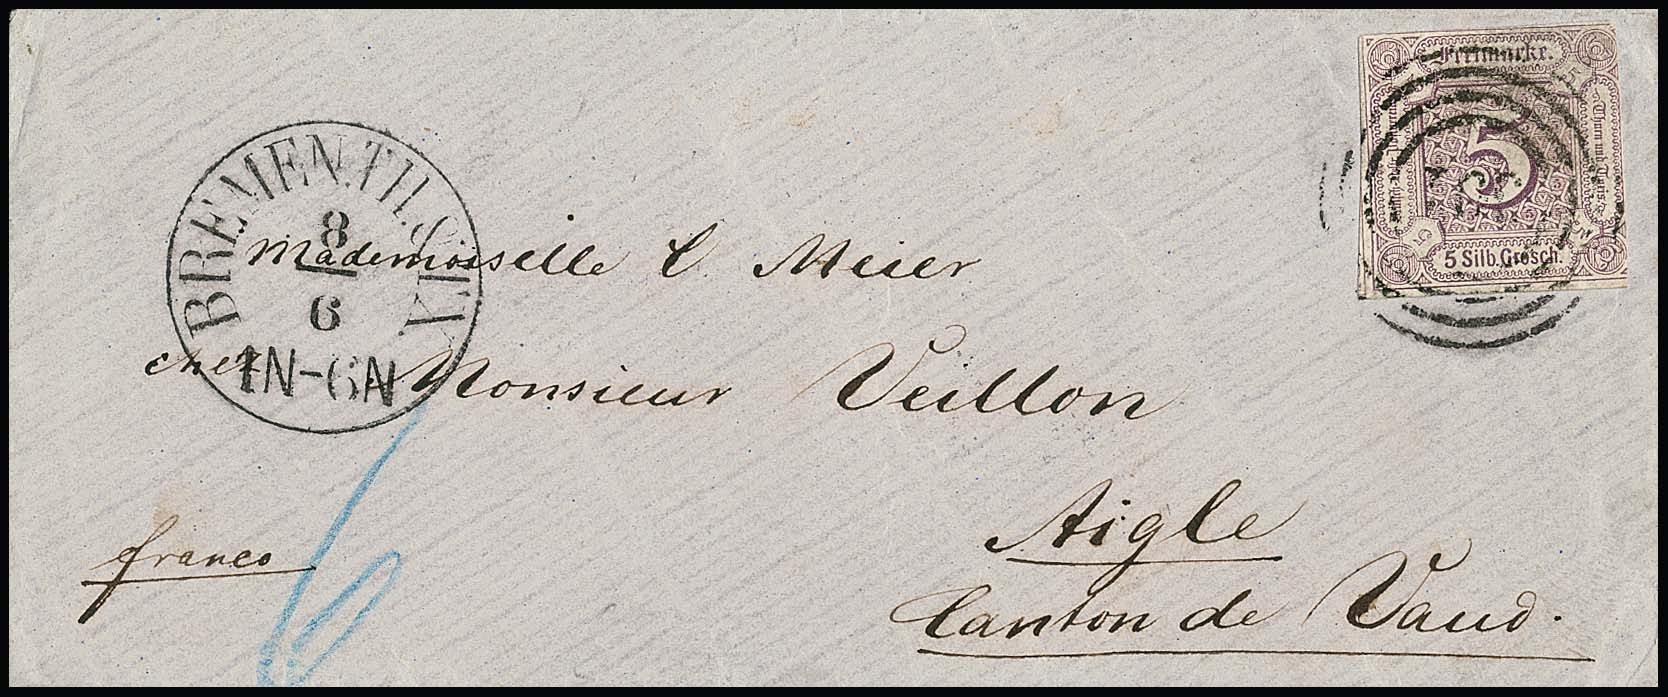 BREMEN.TH.&TX.
8
6
1N-6N
Freimarke.
5
5 Silb. Grosch.
Thurn und Taxis
Mademoiselle C Meier
chez Monsieur Veillon
Aigle
franco
Canton de Vaud.